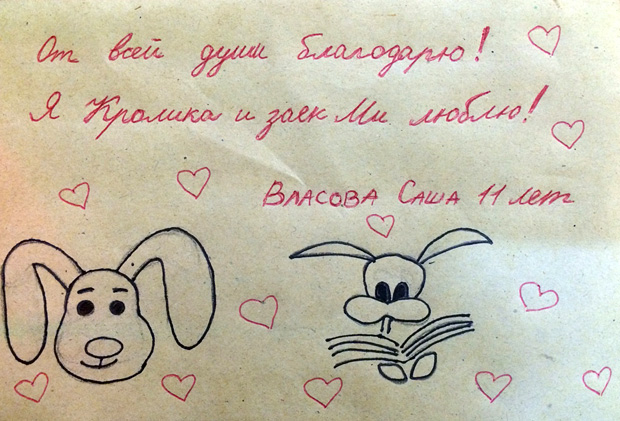 От всей души благодарю!
Я Кролика и заек Ми люблю!
Власова Саша 11 лет